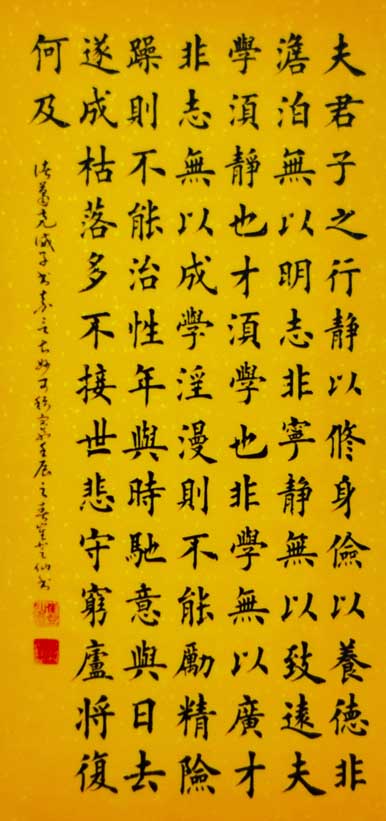 夫君子之行静以修身儉以養德非
澹泊無以明志非寧静無以致遠夫
學須静也才須學也非學無以廣才
非志無以成學淫漫則不能勵精險
躁則不能治性年與時馳意與日去
遂成枯落多不接世悲守窮廬將復
何及
诸葛亮诫子书壬辰之春